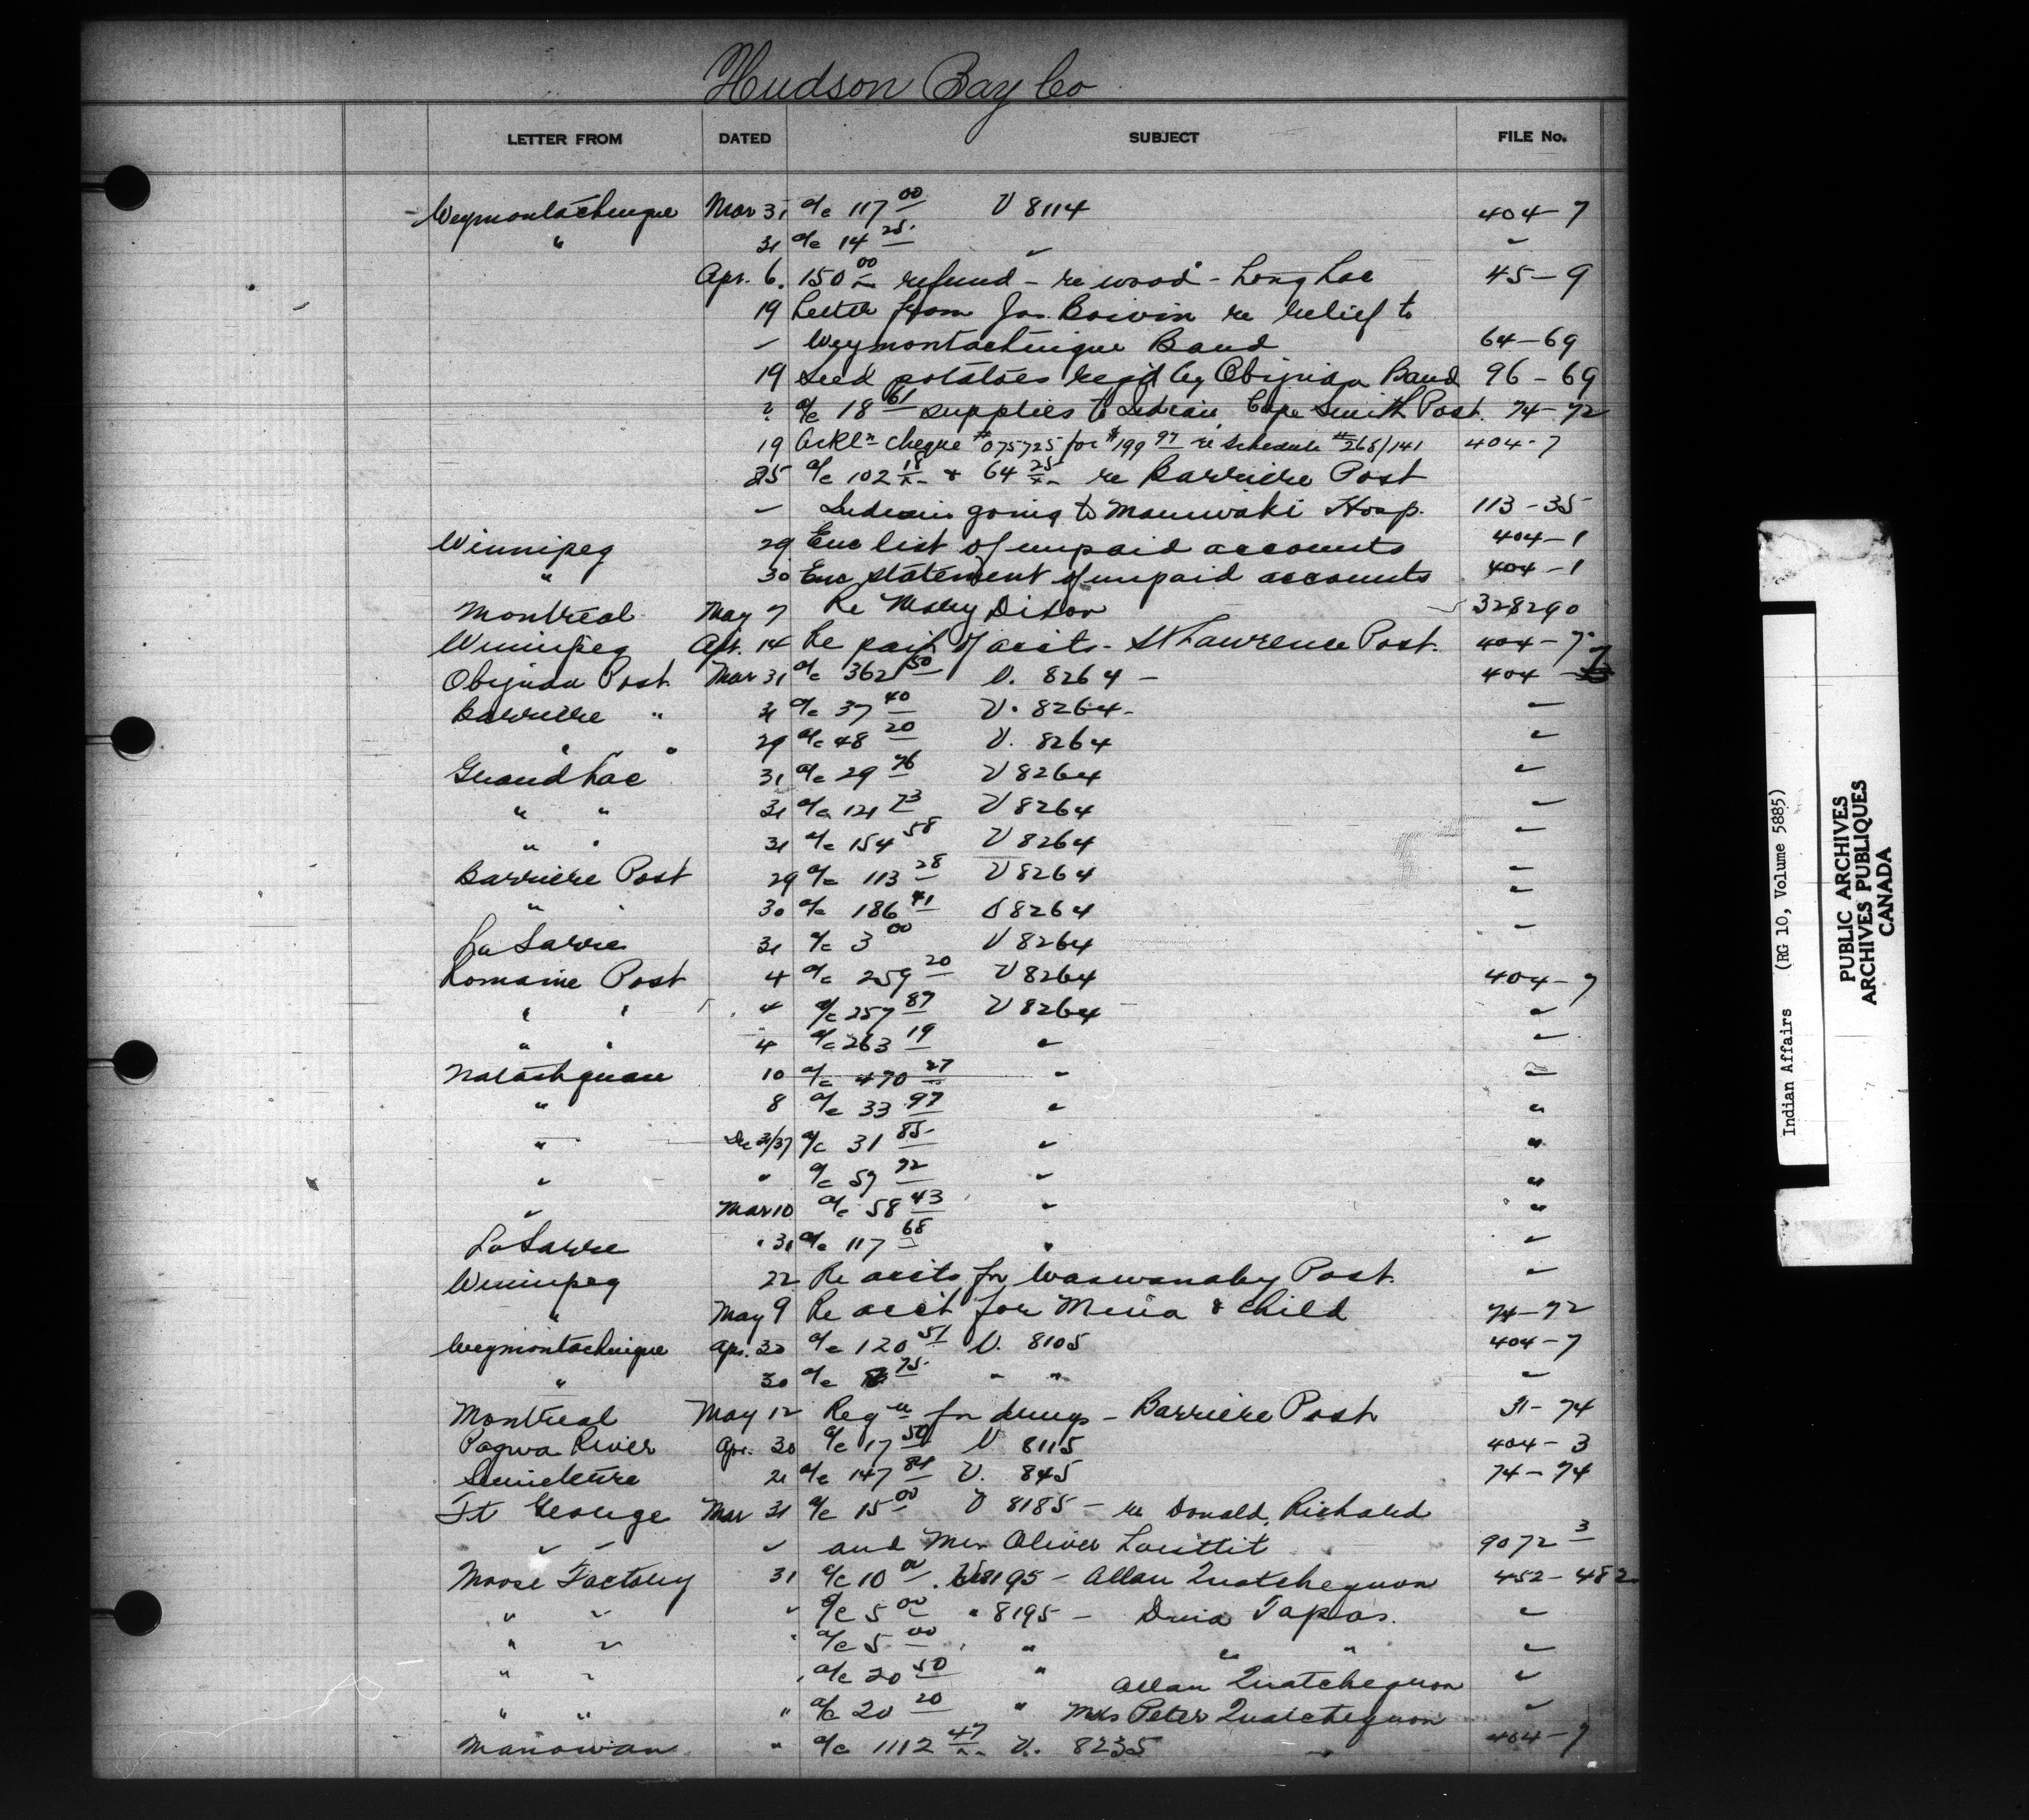 Hudson Bay Co
LETTER FROM DATED SUBJECT FILE No.
Weymontachingue Mar 31 a/c 117 00 V 8114 404-7
" 31 a/c 14 25 " "
Apr. 6. 150 00 refund - re wood - Long Lac 45-9
19 Letter from Jos. Boivin re relief to
" Weymontachingue Band 64-69
19 Seed potatoes req'd by Obijuan Band 96-69
? a/c 18 61 supplies to Indian, Cape Smith Post. 74-72
19 Ackln cheque #075725 for $199 97 re schedule #268/141 404-7
25 a/c 102 18 & 64 25 re Barriere Post
" Indians going to Maniwaki Hosp. 113-35
Winnipeg 29 Enc list of unpaid accounts 404-1
" 30 Enc statement of unpaid accounts 404-1
Montreal May 7 Re 328290
Winnipeg Apr. 14 Re of accts - St Lawrence Post. 404-7
Obijuan Post Mar 31 a/c 362 50 V. 8264 - 404-7
Barriere " 31 a/c 37 40 V. 8264- "
" " 29 a/c 48 20 V. 8264 "
Grand Lac 31 a/c 29 76 V 8264 "
" " 31 a/c 121 73 V 8264 "
" " 31 a/c 154 58 V 8264 "
Barriere Post 29 a/c 113 28 V 8264 "
" " 30 a/c 186 41 V 8264 "
La Sarre 31 a/c 3 00 V 8264 "
Romaine Post 4 a/c 259 20 V 8264 404-7
" " 4 a/c 257 87 V 8264 "
" " 4 a/c 263 19 " "
Natashquan 10 a/c 470 27 " "
" 8 a/c 33 97 " "
" Dec 31/37 a/c 31 85 " "
" " a/c 59 72 " "
" Mar 10 a/c 58 43 " "
La Sarre " 31 a/c 117 68 " "
Winnipeg 22 Re accts for Waswanaby Post. "
" May 9 Re acc't for Mina & child 74-72
Weymontachingue Apr. 30 a/c 120 51 V. 8105 404-7
" 30 a/c 75 " " "
Montreal May 12 Reqn for drugs - Barriere Post 31-74
Pagwa River Apr. 30 a/c 17 50 V 8115 404-3
Senneterre 21 a/c 147 84 V. 845 74-74
Ft George Mar 31 a/c 15 00 V 8185 - re Donald, Richard
" " " and Mrs Oliver Louttit 9072 3
Moose Factory 31 a/c 10 00 . V8195 - Allan Quatchequon 452-482
" " " a/c 5 00 " 8195 - Tapas. "
" " " a/c 5 00 " " " "
" " " a/c 20 50 " Allan Quatchequon "
" " " a/c 20 20 " Mrs Peter Quatchequon "
Manowan " a/c 1112 47 V. 8235 404-7
Indian Affairs (RG 10, Volume 5885)
PUBLIC ARCHIVES
ARCHIVES PUBLIQUES
CANADA